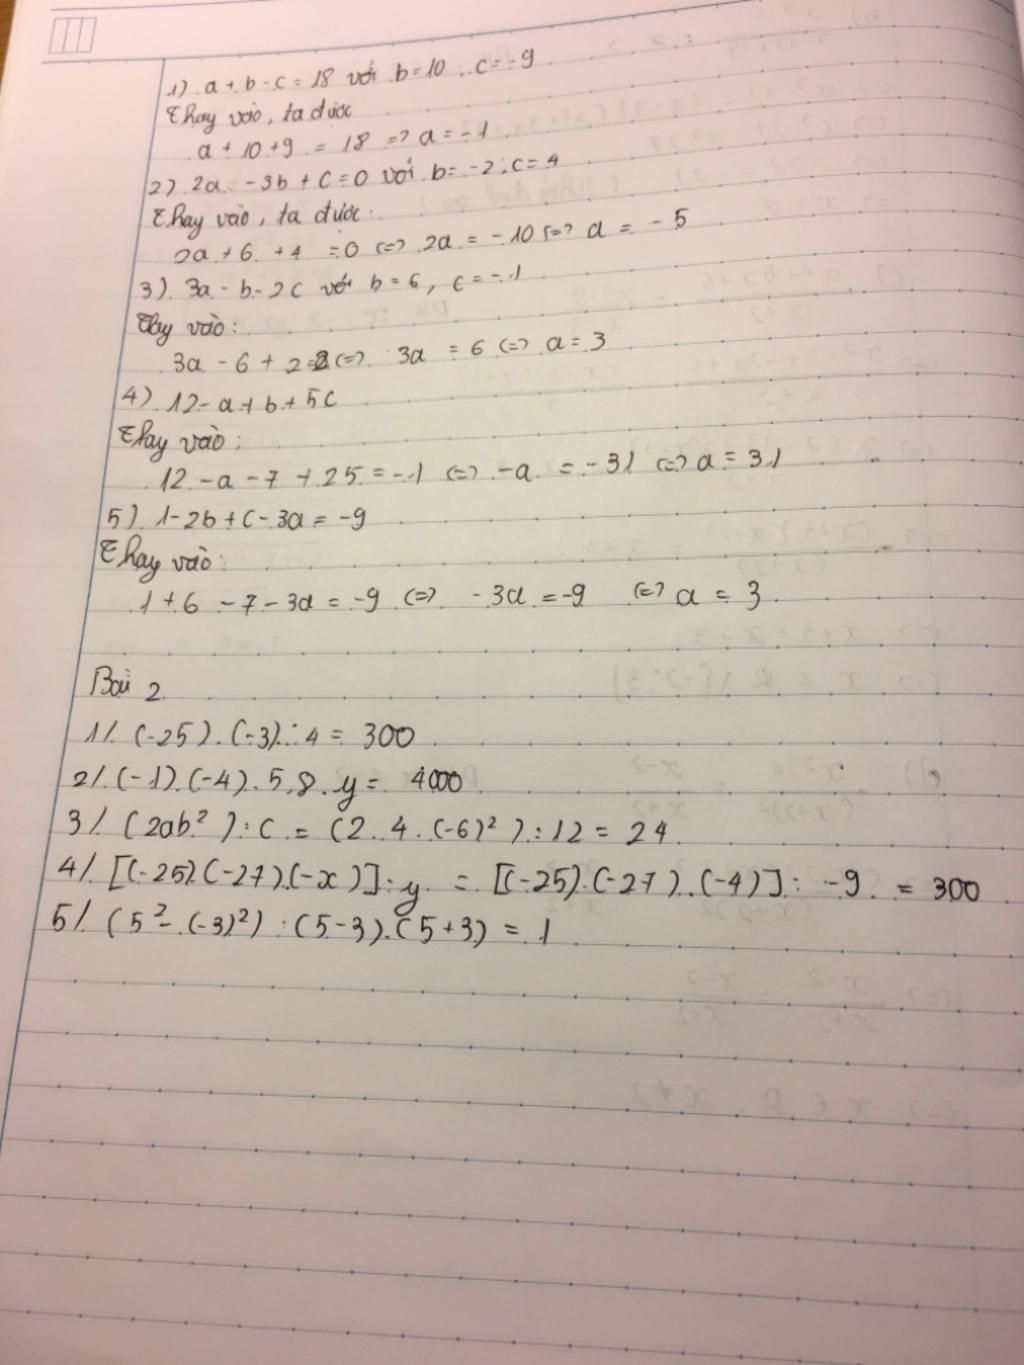 1) a + b - c = 18 với b = 10 ; c = -9
Thay vào, ta được
a + 10 + 9 = 18 => a = -1
2) 2a - 3b + c = 0 với b = -2 ; c = 4
Thay vào, ta được:
2a + 6 + 4 = 0 <=> 2a = -10 <=> a = -5
3) 3a - b - 2c với b = 6, c = -1
Thay vào:
3a - 6 + 2 = 2 <=> 3a = 6 <=> a = 3
4) 12 - a + b + 5c
Thay vào:
12 - a - 7 + 25 = -1 <=> -a = -31 <=> a = 31
5) 1 - 2b + c - 3a = -9
Thay vào:
1 + 6 - 7 - 3a = -9 <=> -3a = -9 <=> a = 3
Bài 2
1/. (-25).(-3).4 = 300
2/. (-1).(-4).5.8.y = 4000
3/. (2ab²) : c = (2.4.(-6)²) : 12 = 24
4/. [(-25).(-27).(-x)] : y = [(-25).(-27).(-4)] : -9 = 300
5/. (5² - (-3)²) : (5-3).(5+3) = 1